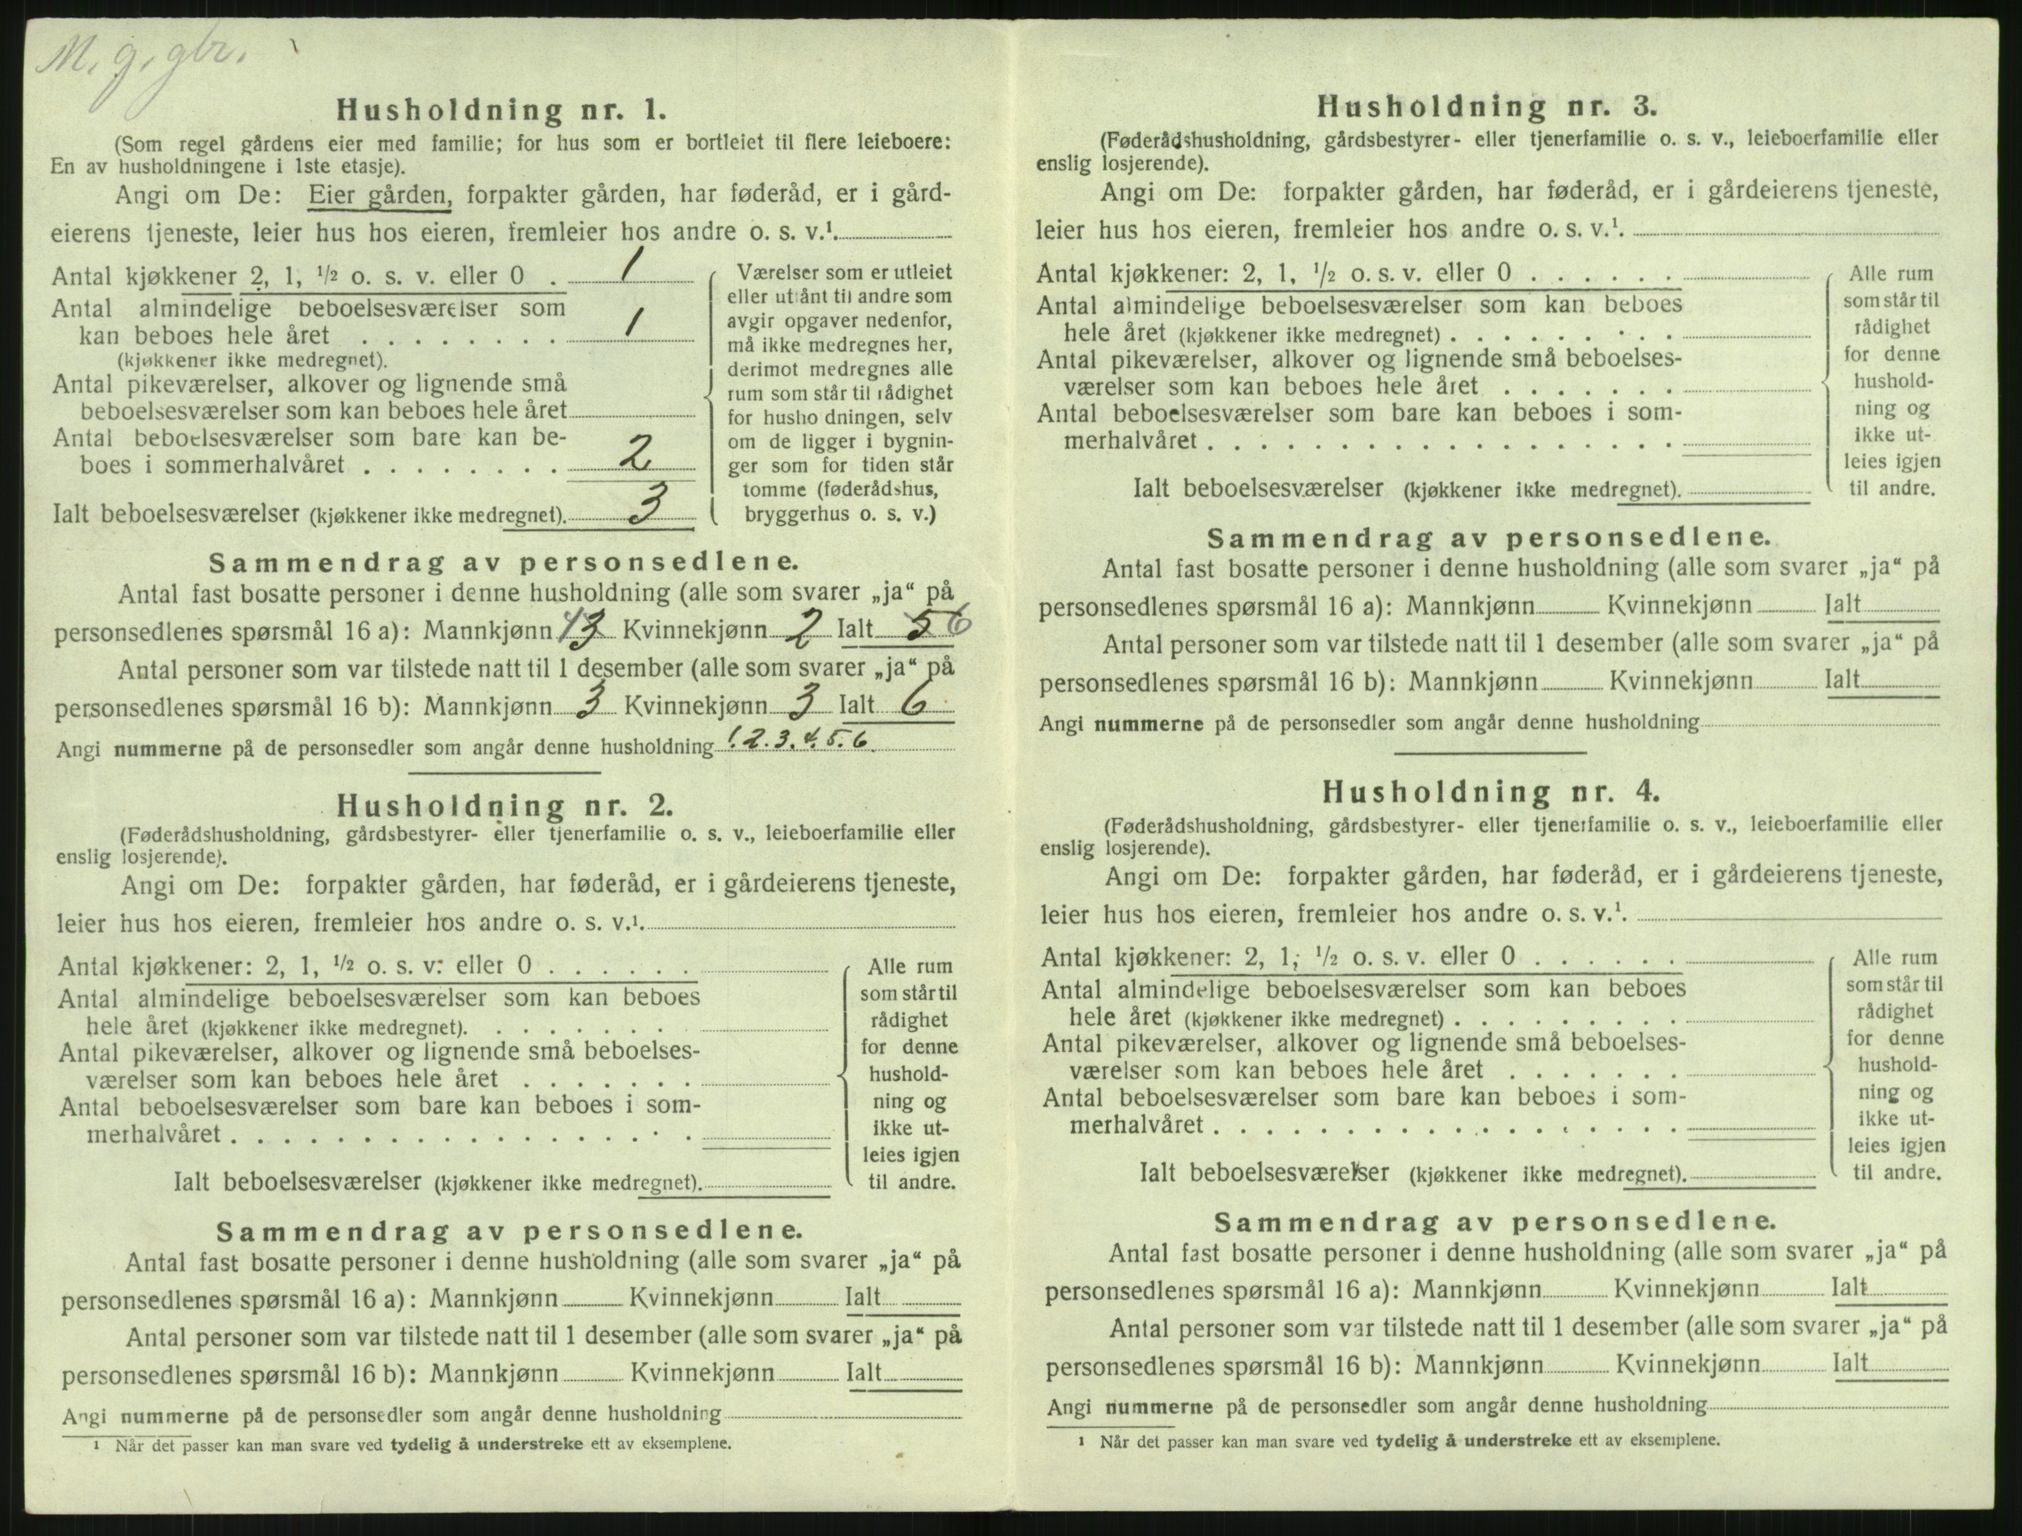 M. g. gbr.
Husholdning nr. 1.
(Som regel gårdens eier med familie; for hus som er bortleiet til flere leieboere:
En av husholdningene i 1ste etasje).
Angi om De: Eier gården, forpakter gården, har føderåd, er i gård-
eierens tjeneste, leier hus hos eieren, fremleier hos andre o. s. v.¹.
Antal kjøkkener 2, 1, ½ o. s. v. eller 0 . 1
Antal almindelige beboelsesværelser som
kan beboes hele året . . . . . . . . 1
(kjøkkener ikke medregnet).
Antal pikeværelser, alkover og lignende små
beboelsesværelser som kan beboes hele året
Antal beboelsesværelser som bare kan be-
boes i sommerhalvåret . . . . . . . . 2
Ialt beboelsesværelser (kjøkkener ikke medregnet). 3
Værelser som er utleiet
eller utlånt til andre som
avgir opgaver nedenfor,
må ikke medregnes her,
derimot medregnes alle
rum som står til rådighet
for husho dningen, selv
om de ligger i bygnin-
ger som for tiden står
tomme (føderådshus,
bryggerhus o. s. v.)
Sammendrag av personsedlene.
Antal fast bosatte personer i denne husholdning (alle som svarer „ja“ på
personsedlenes spørsmål 16 a): Mannkjønn 4 3 Kvinnekjønn 2 Ialt 5 6
Antal personer som var tilstede natt til 1 desember (alle som svarer „ja“ på
personsedlenes spørsmål 16 b): Mannkjønn 3 Kvinnekjønn 3 Ialt 6
Angi nummerne på de personsedler som angår denne husholdning 1. 2. 3. 4. 5. 6.
Husholdning nr. 2.
(Føderådshusholdning, gårdsbestyrer- eller tjenerfamilie o. s. v., leieboerfamilie eller
enslig losjerende).
Angi om De: forpakter gården, har føderåd, er i gårdeierens tjeneste,
leier hus hos eieren, fremleier hos andre o. s. v.¹.
Antal kjøkkener: 2, 1, ½ o. s. v. eller 0 . . . . . .
Antal almindelige beboelsesværelser som kan beboes
hele året (kjøkkener ikke medregnet). . . . . . . .
Antal pikeværelser, alkover og lignende små beboelses-
værelser som kan beboes hele året . . . . . . .
Antal beboelsesværelser som bare kan beboes i som-
merhalvåret . . . . . . . . . . . . . . . . . .
Ialt beboelsesværelser (kjøkkener ikke medregnet).
Alle rum
som står til
rådighet
for denne
hushold-
ning og
ikke ut-
leies igjen
til andre.
Sammendrag av personsedlene.
Antal fast bosatte personer i denne husholdning (alle som svarer „ja“ på
personsedlenes spørsmål 16 a): Mannkjønn Kvinnekjønn Ialt
Antal personer som var tilstede natt til 1 desember (alle som svarer „ja“ på
personsedlenes spørsmål 16 b): Mannkjønn Kvinnekjønn Ialt
Angi nummerne på de personsedler som angår denne husholdning
¹ Når det passer kan man svare ved tydelig å understreke ett av eksemplene.
Husholdning nr. 3.
(Føderådshusholdning, gårdsbestyrer- eller tjenerfamilie o. s. v., leieboerfamilie eller
enslig losjerende).
Angi om De: forpakter gården, har føderåd, er i gårdeierens tjeneste,
leier hus hos eieren, fremleier hos andre o. s. v.¹.
Antal kjøkkener: 2, 1, ½ o. s. v. eller 0 . . . . . .
Antal almindelige beboelsesværelser som kan beboes
hele året (kjøkkener ikke medregnet) . . . . . . . .
Antal pikeværelser, alkover og lignende små beboelses-
værelser som kan beboes hele året . . . . . . .
Antal beboelsesværelser som bare kan beboes i som-
merhalvåret . . . . . . . . . . . . . . . . . .
Ialt beboelsesværelser (kjøkkener ikke medregnet).
Alle rum
som står til
rådighet
for denne
hushold-
ning og
ikke ut-
leies igjen
til andre.
Sammendrag av personsedlene.
Antal fast bosatte personer i denne husholdning (alle som svarer „ja“ på
personsedlenes spørsmål 16 a): Mannkjønn Kvinnekjønn Ialt
Antal personer som var tilstede natt til 1 desember (alle som svarer „ja“ på
personsedlenes spørsmål 16 b): Mannkjønn Kvinnekjønn Ialt
Angi nummerne på de personsedler som angår denne husholdning
Husholdning nr. 4.
(Føderådshusholdning, gårdsbestyrer- eller tjenerfamilie o. s. v., leieboerfamilie eller
enslig losjerende).
Angi om De: forpakter gården, har føderåd, er i gårdeierens tjeneste,
leier hus hos eieren, fremleier hos andre o. s. v.¹.
Antal kjøkkener: 2, 1, ½ o. s. v. eller 0 . . . . . .
Antal almindelige beboelsesværelser som kan beboes
hele året (kjøkkener ikke medregnet) . . . . . . . .
Antal pikeværelser, alkover og lignende små beboelses-
værelser som kan beboes hele året . . . . . . .
Antal beboelsesværelser som bare kan beboes i som-
merhalvåret . . . . . . . . . . . . . . . . . .
Ialt beboelsesværelser (kjøkkener ikke medregnet).
Alle rum
som står til
rådighet
for denne
hushold-
ning og
ikke ut-
leies igjen
til andre.
Sammendrag av personsedlene.
Antal fast bosatte personer i denne husholdning (alle som svarer „ja“ på
personsedlenes spørsmål 16 a): Mannkjønn Kvinnekjønn Ialt
Antal personer som var tilstede natt til 1 desember (alle som svarer „ja“ på
personsedlenes spørsmål 16 b): Mannkjønn Kvinnekjønn Ialt
Angi nummerne på de personsedler som angår denne husholdning
¹ Når det passer kan man svare ved tydelig å understreke ett av eksemplene.